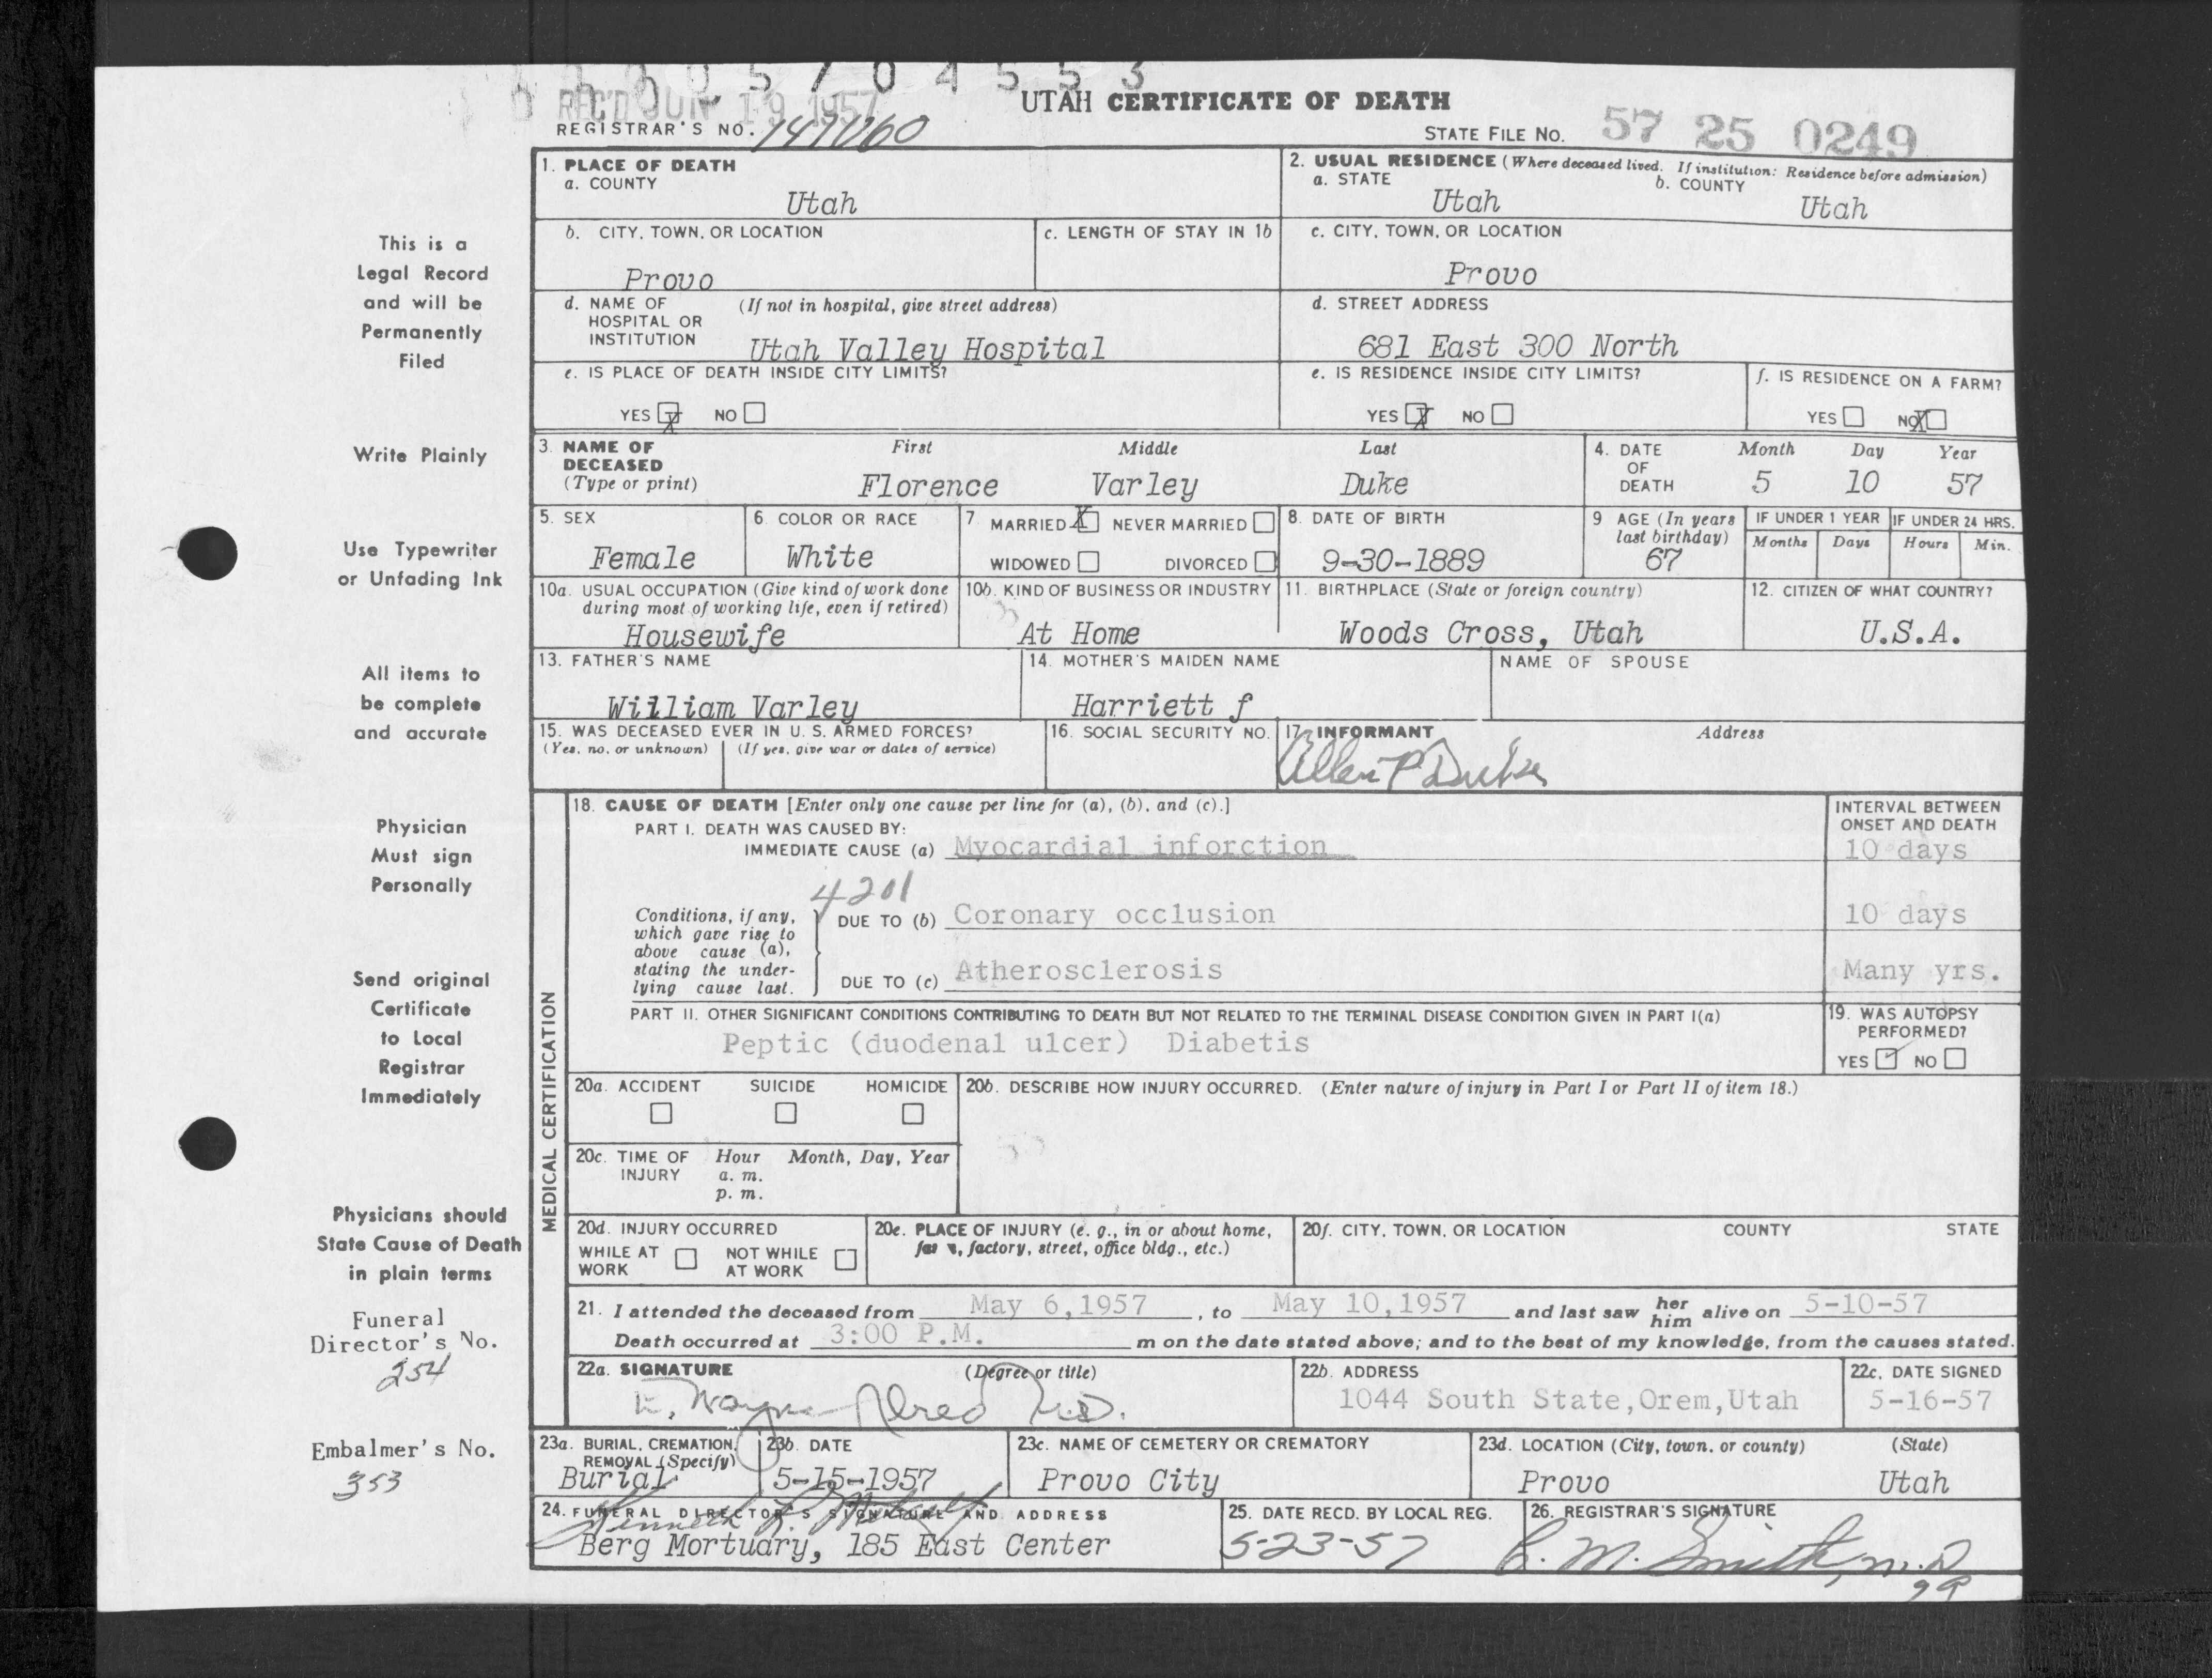 00570 4553
REC'D JUN 19 1957
UTAH CERTIFICATE OF DEATH
REGISTRAR'S NO.
STATE FILE NO. 57 25 0249
This is a
Legal Record
and will be
Permanently
Filed
Write Plainly
Use Typewriter
or Unfading Ink
All items to
be complete
and accurate
Physician
Must sign
Personally
Send original
Certificate
to Local
Registrar
Immediately
Physicians should
State Cause of Death
in plain terms
Funeral
Director's No.
254
Embalmer's No.
353
1. PLACE OF DEATH
a. COUNTY
Utah
2. USUAL RESIDENCE (Where deceased lived. If institution: Residence before admission)
a. STATE b. COUNTY
Utah Utah
b. CITY, TOWN, OR LOCATION c. LENGTH OF STAY IN 1b
Provo
c. CITY, TOWN, OR LOCATION
Provo
d. NAME OF (If not in hospital, give street address)
HOSPITAL OR
INSTITUTION Utah Valley Hospital
d. STREET ADDRESS
681 East 300 North
e. IS PLACE OF DEATH INSIDE CITY LIMITS?
YES X NO
e. IS RESIDENCE INSIDE CITY LIMITS? f. IS RESIDENCE ON A FARM?
YES X NO YES NO X
3. NAME OF First Middle Last
DECEASED
(Type or print) Florence Varley Duke
4. DATE Month Day Year
OF
DEATH 5 10 57
5. SEX
Female
6. COLOR OR RACE
White
7 MARRIED X NEVER MARRIED
WIDOWED DIVORCED
8. DATE OF BIRTH
9-30-1889
9 AGE (In years
last birthday)
67
IF UNDER 1 YEAR IF UNDER 24 HRS.
Months Days Hours Min.
10a. USUAL OCCUPATION (Give kind of work done
during most of working life, even if retired)
Housewife
10b. KIND OF BUSINESS OR INDUSTRY
At Home
11. BIRTHPLACE (State or foreign country)
Woods Cross, Utah
12. CITIZEN OF WHAT COUNTRY?
U.S.A.
13. FATHER'S NAME
William Varley
14. MOTHER'S MAIDEN NAME
Harriett f
NAME OF SPOUSE
15. WAS DECEASED EVER IN U. S. ARMED FORCES?
(Yes, no, or unknown) (If yes, give war or dates of service)
16. SOCIAL SECURITY NO.
17. INFORMANT Address
Allen P Duke
MEDICAL CERTIFICATION
18. CAUSE OF DEATH [Enter only one cause per line for (a), (b), and (c).]
INTERVAL BETWEEN
ONSET AND DEATH
PART I. DEATH WAS CAUSED BY:
IMMEDIATE CAUSE (a) Myocardial inforction 10 days
4201
Conditions, if any,
which gave rise to
above cause (a),
stating the under-
lying cause last.
DUE TO (b) Coronary occlusion 10 days
DUE TO (c) Atherosclerosis Many yrs.
PART II. OTHER SIGNIFICANT CONDITIONS CONTRIBUTING TO DEATH BUT NOT RELATED TO THE TERMINAL DISEASE CONDITION GIVEN IN PART I(a)
Peptic (duodenal ulcer) Diabetis
19. WAS AUTOPSY
PERFORMED?
YES ✓ NO
20a. ACCIDENT SUICIDE HOMICIDE
20b. DESCRIBE HOW INJURY OCCURRED. (Enter nature of injury in Part I or Part II of item 18.)
20c. TIME OF Hour Month, Day, Year
INJURY a. m.
p. m.
20d. INJURY OCCURRED
WHILE AT NOT WHILE
WORK AT WORK
20e. PLACE OF INJURY (e. g., in or about home,
factory, street, office bldg., etc.)
20f. CITY, TOWN, OR LOCATION COUNTY STATE
21. I attended the deceased from May 6,1957, to May 10,1957 and last saw her him alive on 5-10-57
Death occurred at 3:00 P.M. m on the date stated above; and to the best of my knowledge, from the causes stated.
22a. SIGNATURE (Degree or title)
E. Wayne Allred M.D.
22b. ADDRESS
1044 South State,Orem,Utah
22c. DATE SIGNED
5-16-57
23a. BURIAL, CREMATION,
REMOVAL (Specify)
Burial
23b. DATE
5-15-1957
23c. NAME OF CEMETERY OR CREMATORY
Provo City
23d. LOCATION (City, town, or county) (State)
Provo Utah
24. FUNERAL DIRECTOR'S SIGNATURE AND ADDRESS
Berg Mortuary, 185 East Center
25. DATE RECD. BY LOCAL REG.
5-23-57
26. REGISTRAR'S SIGNATURE
C. M. Smith, M.D